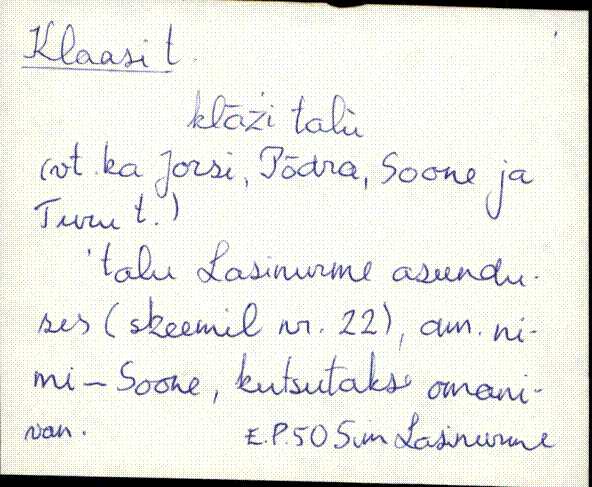 Klaasi t.
klāźi talù
(vt. ka Jorsi, Põdra, Soone ja
Turu t.)
'talu Lasinurme asundu-
ses (skeemil nr. 22), am. ni-
mi – Soone, kutsutakse omani-
E.P. 50 Sim Lasinurme